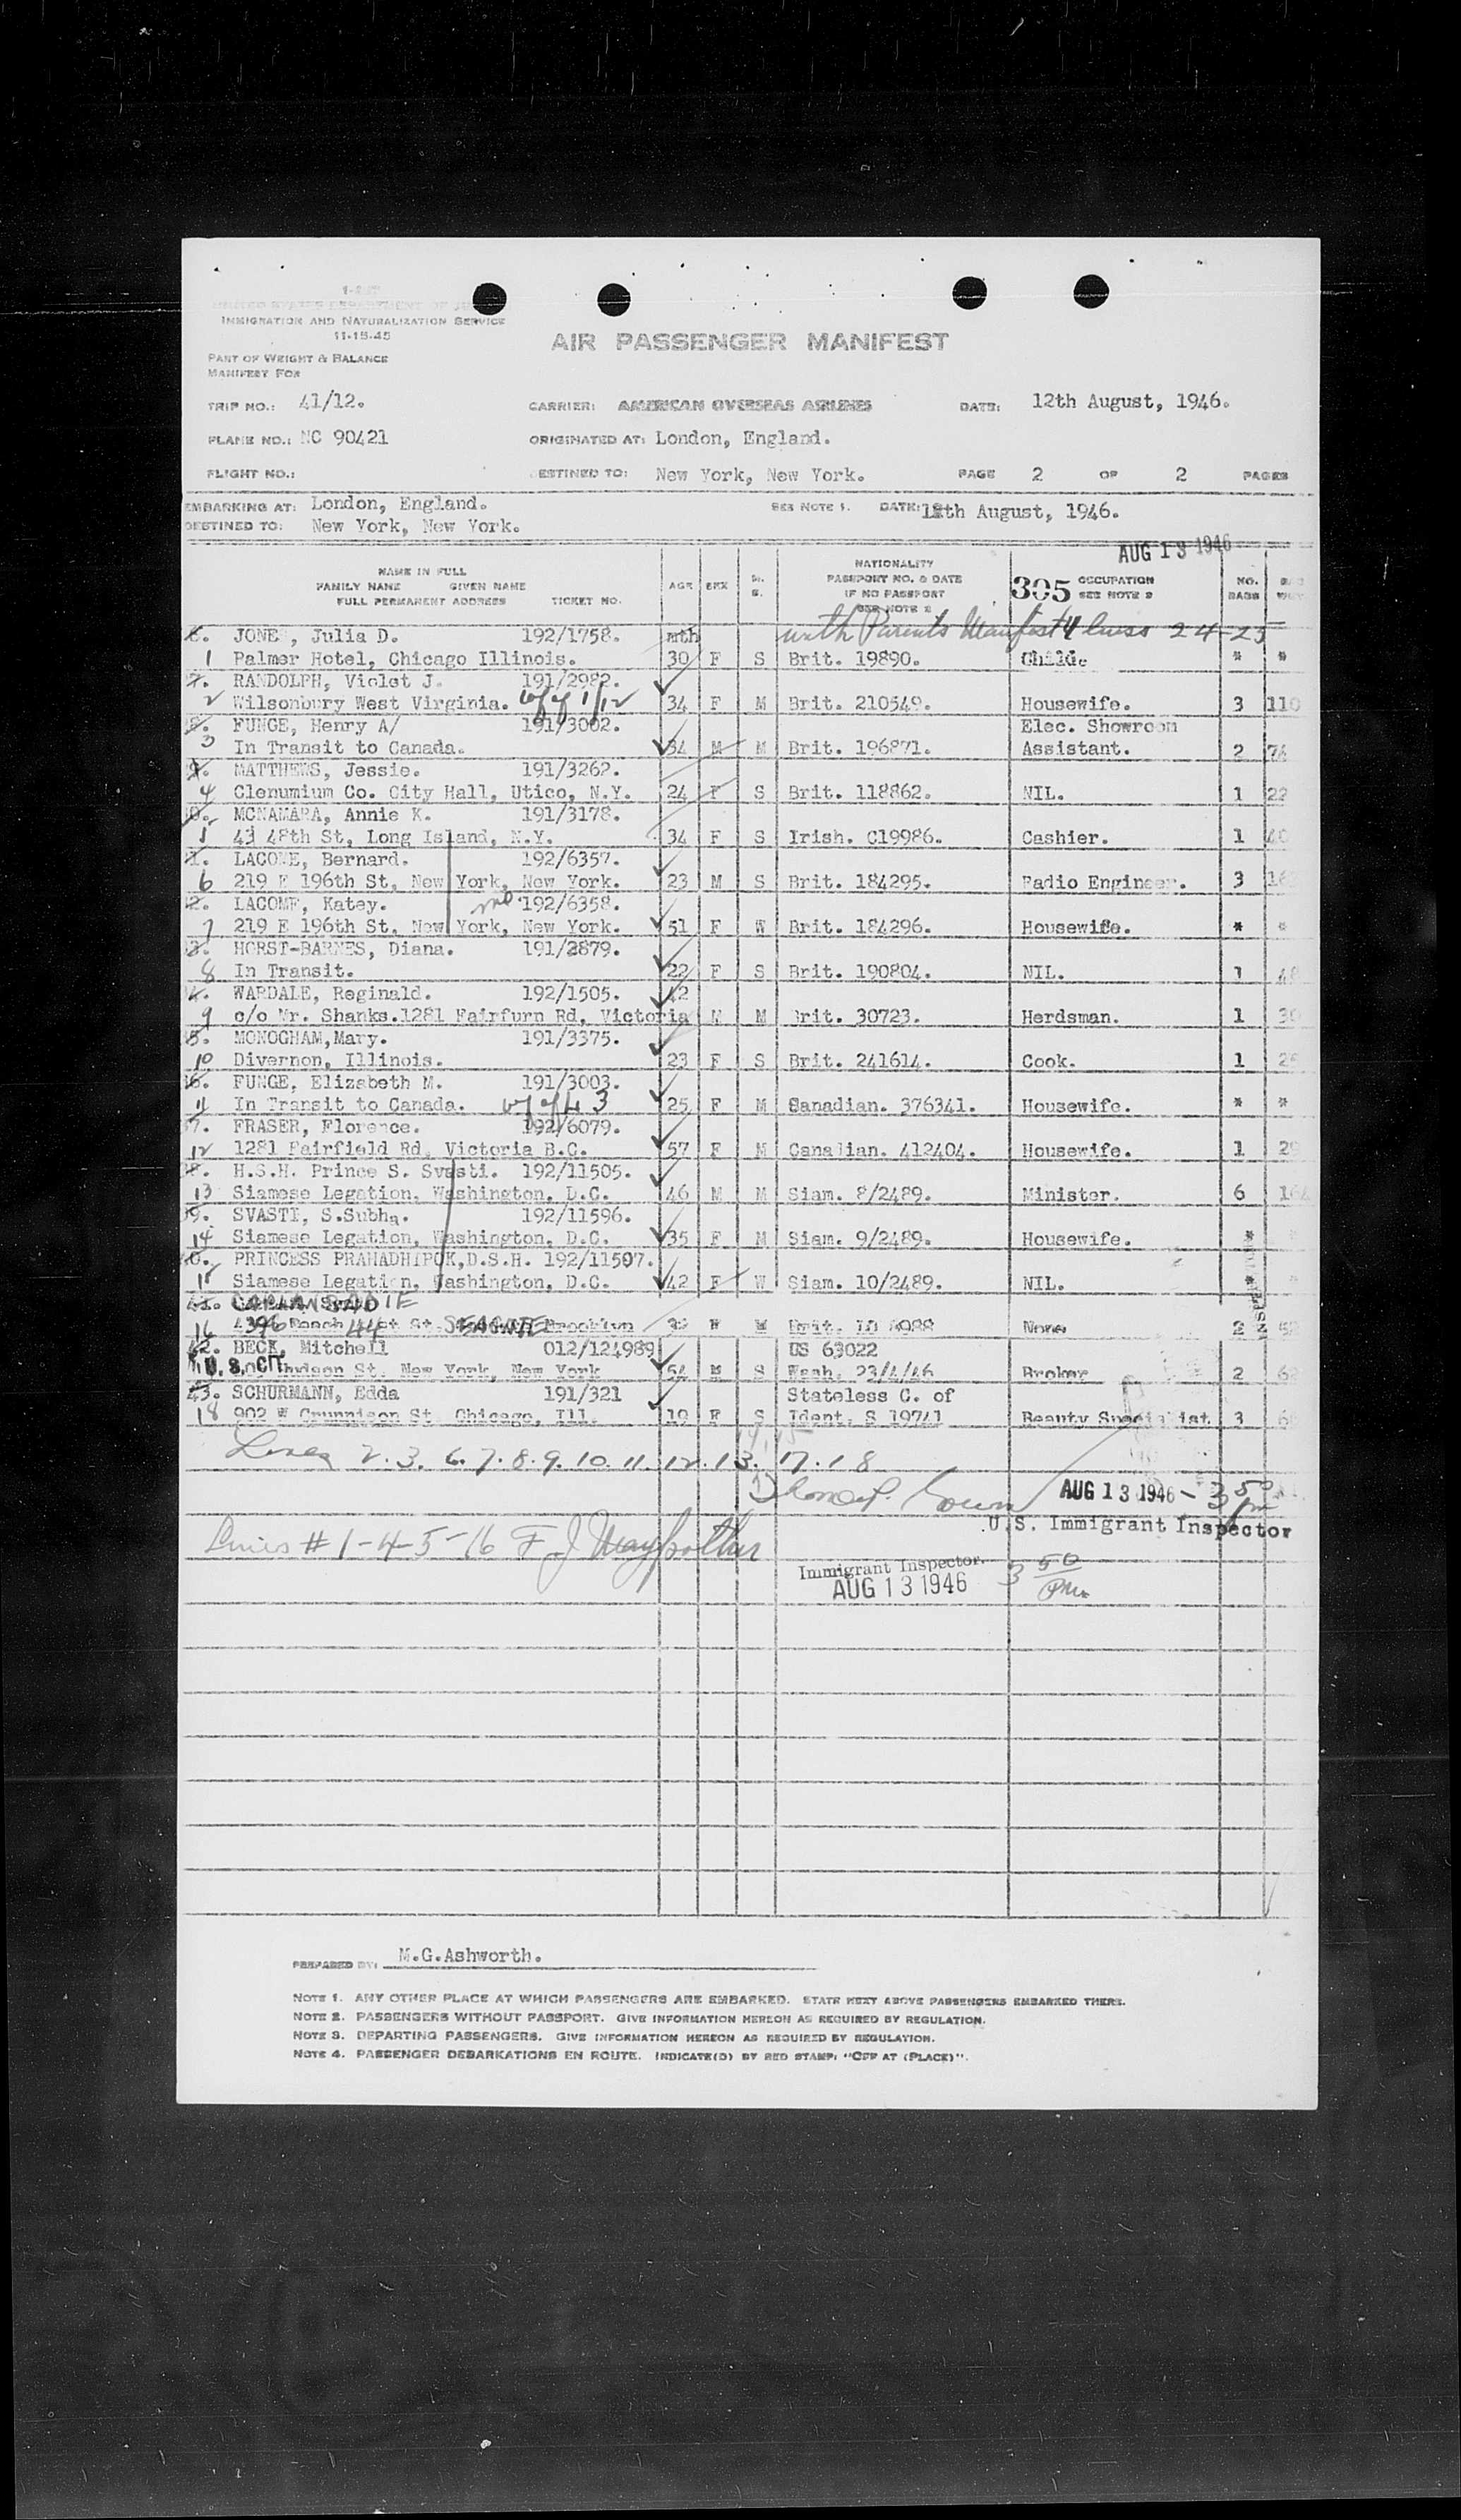 IMMIGRATION AND NATURALIZATION SERVICE
11-15-45
PART OF WEIGHT & BALANCE
MANIFEST FOR
AIR PASSENGER MANIFEST
TRIP NO.: 41/12. CARRIER: AMERICAN OVERSEAS AIRLINES DATE: 12th August, 1946.
PLANE NO.: NC 90421 ORIGINATED AT: London, England.
FLIGHT NO.: DESTINED TO: New York, New York. PAGE 2 OF 2 PAGES
EMBARKING AT: London, England. SEE NOTE 1. DATE: 12th August, 1946.
DESTINED TO: New York, New York.
AUG 13 1946
NAME IN FULL
FAMILY NAME GIVEN NAME
FULL PERMANENT ADDRESS TICKET NO. AGE SEX
NATIONALITY
PASSPORT NO. & DATE
IF NO PASSPORT
SEE NOTE 2
305 OCCUPATION
SEE NOTE 3 NO.
BAGS
6. JONE , Julia D. 192/1758. mth with Parents Manifest 4 lines 24-25
1 Palmer Hotel, Chicago Illinois. 30 F S Brit. 19890. Child. * *
7. RANDOLPH, Violet J. 191/2982.
2 Wilsonbury West Virginia. 34 F M Brit. 210549. Housewife. 3 110
8. FUNGE, Henry A/ 191/3002. Elec. Showroom
3 In Transit to Canada. 34 M M Brit. 196871. Assistant. 2 74
9. MATTHEWS, Jessie. 191/3262.
4 Clenumium Co. City Hall, Utico, N.Y. 24 F S Brit. 118862. NIL. 1 22
0. MCNAMARA, Annie K. 191/3178.
43 48th St, Long Island, N.Y. 34 F S Irish. C19986. Cashier. 1 40
1. LACOME, Bernard. 192/6357.
6 219 E 196th St, New York, New York. 23 M S Brit. 184295. Radio Engineer. 3
2. LACOME, Katey. 192/6358.
7 219 E 196th St, New York, New York. 51 F W Brit. 184296. Housewife. * *
3. HORST-BARNES, Diana. 191/2879.
8 In Transit. 22 F S Brit. 190804. NIL. 1 48
4. WARDALE, Reginald. 192/1505. 42
9 c/o Mr. Shanks.1281 Fairfurn Rd, Victoria M M Brit. 30723. Herdsman. 1 30
5. MONOGHAM,Mary. 191/3375.
10 Divernon, Illinois. 23 F S Brit. 241614. Cook. 1
6. FUNGE, Elizabeth M. 191/3003.
11 In Transit to Canada. 25 F M Canadian. 376341. Housewife. * *
7. FRASER, Florence. 192/6079.
12 1281 Fairfield Rd, Victoria B.C. 57 F M Canadian. 412404. Housewife. 1
8. H.S.H. Prince S. Svasti. 192/11505.
13 Siamese Legation, Washington, D.C. 46 M M Siam. 8/2489. Minister. 6
9. SVASTI, S.Subha. 192/11596.
14 Siamese Legation, Washington, D.C. 35 F M Siam. 9/2489. Housewife. *
0. PRINCESS PRAHADHIPOK,D.S.H. 192/11597.
Siamese Legation, Washington, D.C. 42 F W Siam. 10/2489. NIL. *
CAPLAN SADIE
16 4396 Beach 44 St. SEAGATE Brooklyn None 2
42. BECK, Mitchell 012/124989 US 63022
U.S. CIT. Hudson St. New York, New York 54 M S Wash. 23/4/46 Broker 2
43. SCHURMANN, Edda 191/321 Stateless C. of
18 902 W Crunnison St Chicago, Ill. 19 F S Ident. S 19741 Beauty Specialist 3
Lines 2.3.6.7.8.9.10.11.12.13. 17.18
14,15
AUG 13 1946 - 3 50 pm
U.S. Immigrant Inspector
Lines # 1-4-5-16 F J
Immigrant Inspector.
AUG 13 1946 3 50 pm
PREPARED BY: M.G.Ashworth.
NOTE 1. ANY OTHER PLACE AT WHICH PASSENGERS ARE EMBARKED. STATE NEXT ABOVE PASSENGERS EMBARKED THERE.
NOTE 2. PASSENGERS WITHOUT PASSPORT. GIVE INFORMATION HEREON AS REQUIRED BY REGULATION.
NOTE 3. DEPARTING PASSENGERS. GIVE INFORMATION HEREON AS REQUIRED BY REGULATION.
NOTE 4. PASSENGER DEBARKATIONS EN ROUTE. INDICATE(D) BY RED STAMP: "OFF AT (PLACE)".